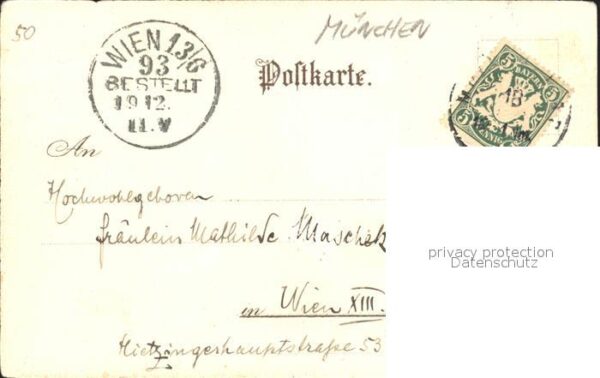 50
MÜNCHEN
WIEN 13/6
93
BESTELLT
19 12.
11.V
Postkarte.
5 BAYERN 5
18
5 PFENNIG 5
An
Hochwohlgeboren
Fräulein Mathilde Maschek
in Wien XIII.
Hietzingerhauptstraße 53
I.
privacy protection
Datenschutz